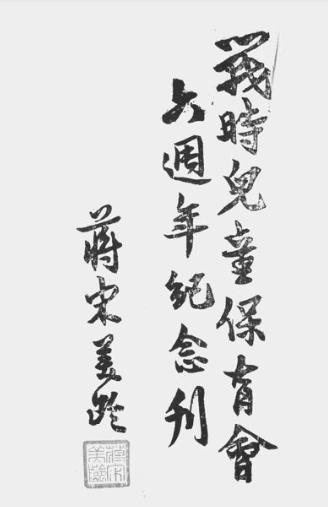 戰時兒童保育會
六週年紀念刊
蔣宋美齡
蔣宋美齡